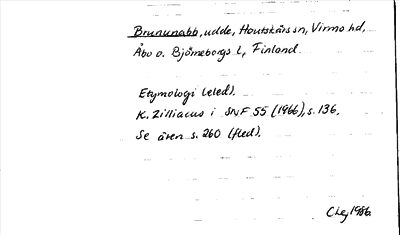 Brununabb, udde, Houtskärs sn, Virmo hd,
Åbo o. Björneborgs l, Finland
Etymologi (eled).
K. Zilliacus i SNF 55 (1966), s. 136,
Se även s. 260 (fled).
CLej 1986.